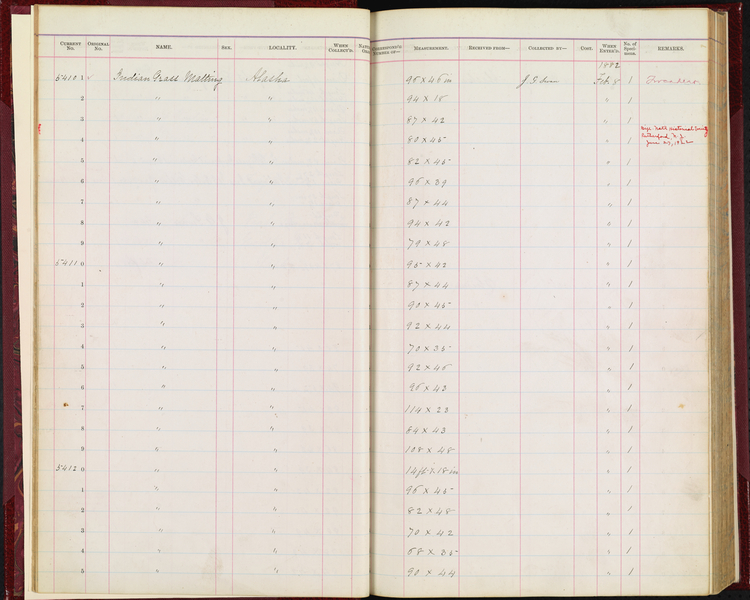 CURRENT No. ORIGINAL No. NAME. SEX. LOCALITY. WHEN COLLECT'D. MEASUREMENT. RECEIVED FROM— COLLECTED BY— COST. WHEN ENTER'D. No. of Specimens. REMARKS.
1882
54101 Indian Grass Matting Alaska 96 x 46 in Feb 8 1
2 " " 94 x 18 " 1
3 " " 87 x 42 " 1
4 " " 80 x 45 " 1
June 27, 1922
5 " " 82 x 45 " 1
6 " " 96 x 39 " 1
7 " " 87 x 44 " 1
8 " " 94 x 42 " 1
9 " " 79 x 48 " 1
54110 " " 95 x 42 " 1
1 " " 87 x 44 " 1
2 " " 90 x 45 " 1
3 " " 92 x 44 " 1
4 " " 70 x 35 " 1
5 " " 92 x 46 " 1
6 " " 96 x 43 " 1
7 " " 114 x 23 " 1
8 " " 84 x 43 " 1
9 " " 108 x 48 " 1
54120 " " 14 ft x 18 in " 1
1 " " 96 x 45 " 1
2 " " 82 x 48 " 1
3 " " 70 x 42 " 1
4 " " 68 x 35 " 1
5 " " 90 x 44 " 1